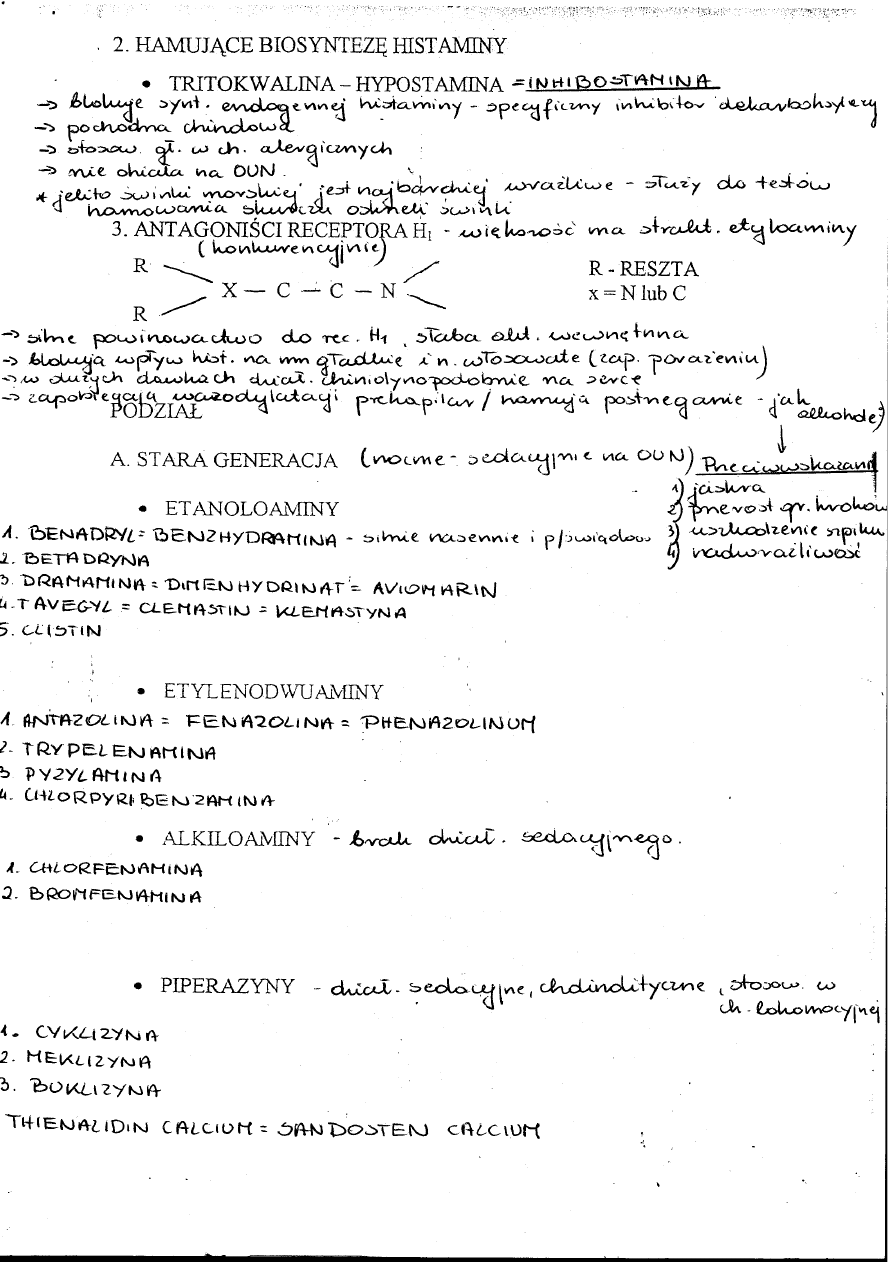 2. HAMUJĄCE BIOSYNTEZĘ HISTAMINY
• TRITOKWALINA – HYPOSTAMINA = INHIBOSTAMINA
→ blokuje synt. endogennej histaminy - specyficzny inhibitor dekarboksylazy
→ pochodna chindowa
→ stosow. gł. w ch. alergicznych
→ nie działa na OUN.
* jelito świnki morskiej jest najbardziej wrażliwe - służy do testów
hamowania skurczu oskrzeli świnki
3. ANTAGONIŚCI RECEPTORA H₁ - większość ma strukt. etyloaminy
(konkurencyjnie)
R R - RESZTA
X — C — C — N x = N lub C
R
→ silne powinowactwo do rec. H₁, słaba akt. wewnętrzna
→ blokują wpływ hist. na mm gładkie i n. włosowate (zap. porażeniu)
→ w dużych dawkach dział. chinidynopodobnie na serce
→ zapobiegają wazodylatacji prekapilar / hamują postrzeganie - jak alkohole)
PODZIAŁ
A. STARA GENERACJA (nocne - sedacyjnie na OUN) Przeciwwskazania
1) jaskra
• ETANOLOAMINY 2) przerost gr. krokow
1. BENADRYL = BENZHYDRAMINA - silnie nasennie i p/świądow 3) uszkodzenie szpiku
2. BETADRYNA 4) nadwrażliwość
3. DRAMAMINA = DIMENHYDRINAT = AVIOMARIN
4. TAVEGYL = CLEMASTIN = KLEMASTYNA
5. CLISTIN
• ETYLENODWUAMINY
1. ANTAZOLINA = FENAZOLINA = PHENAZOLINUM
2. TRYPELENAMINA
3 PYZYLAMINA
4. CHLORPYRIBENZAMINA
• ALKILOAMINY - brak dział. sedacyjnego.
1. CHLORFENAMINA
2. BROMFENAMINA
• PIPERAZYNY - dział. sedacyjne, cholinolityczne, stosow. w
ch. lokomocyjnej
1. CYKLIZYNA
2. MEKLIZYNA
3. BUKLIZYNA
THIENALIDIN CALCIUM = SANDOSTEN CALCIUM